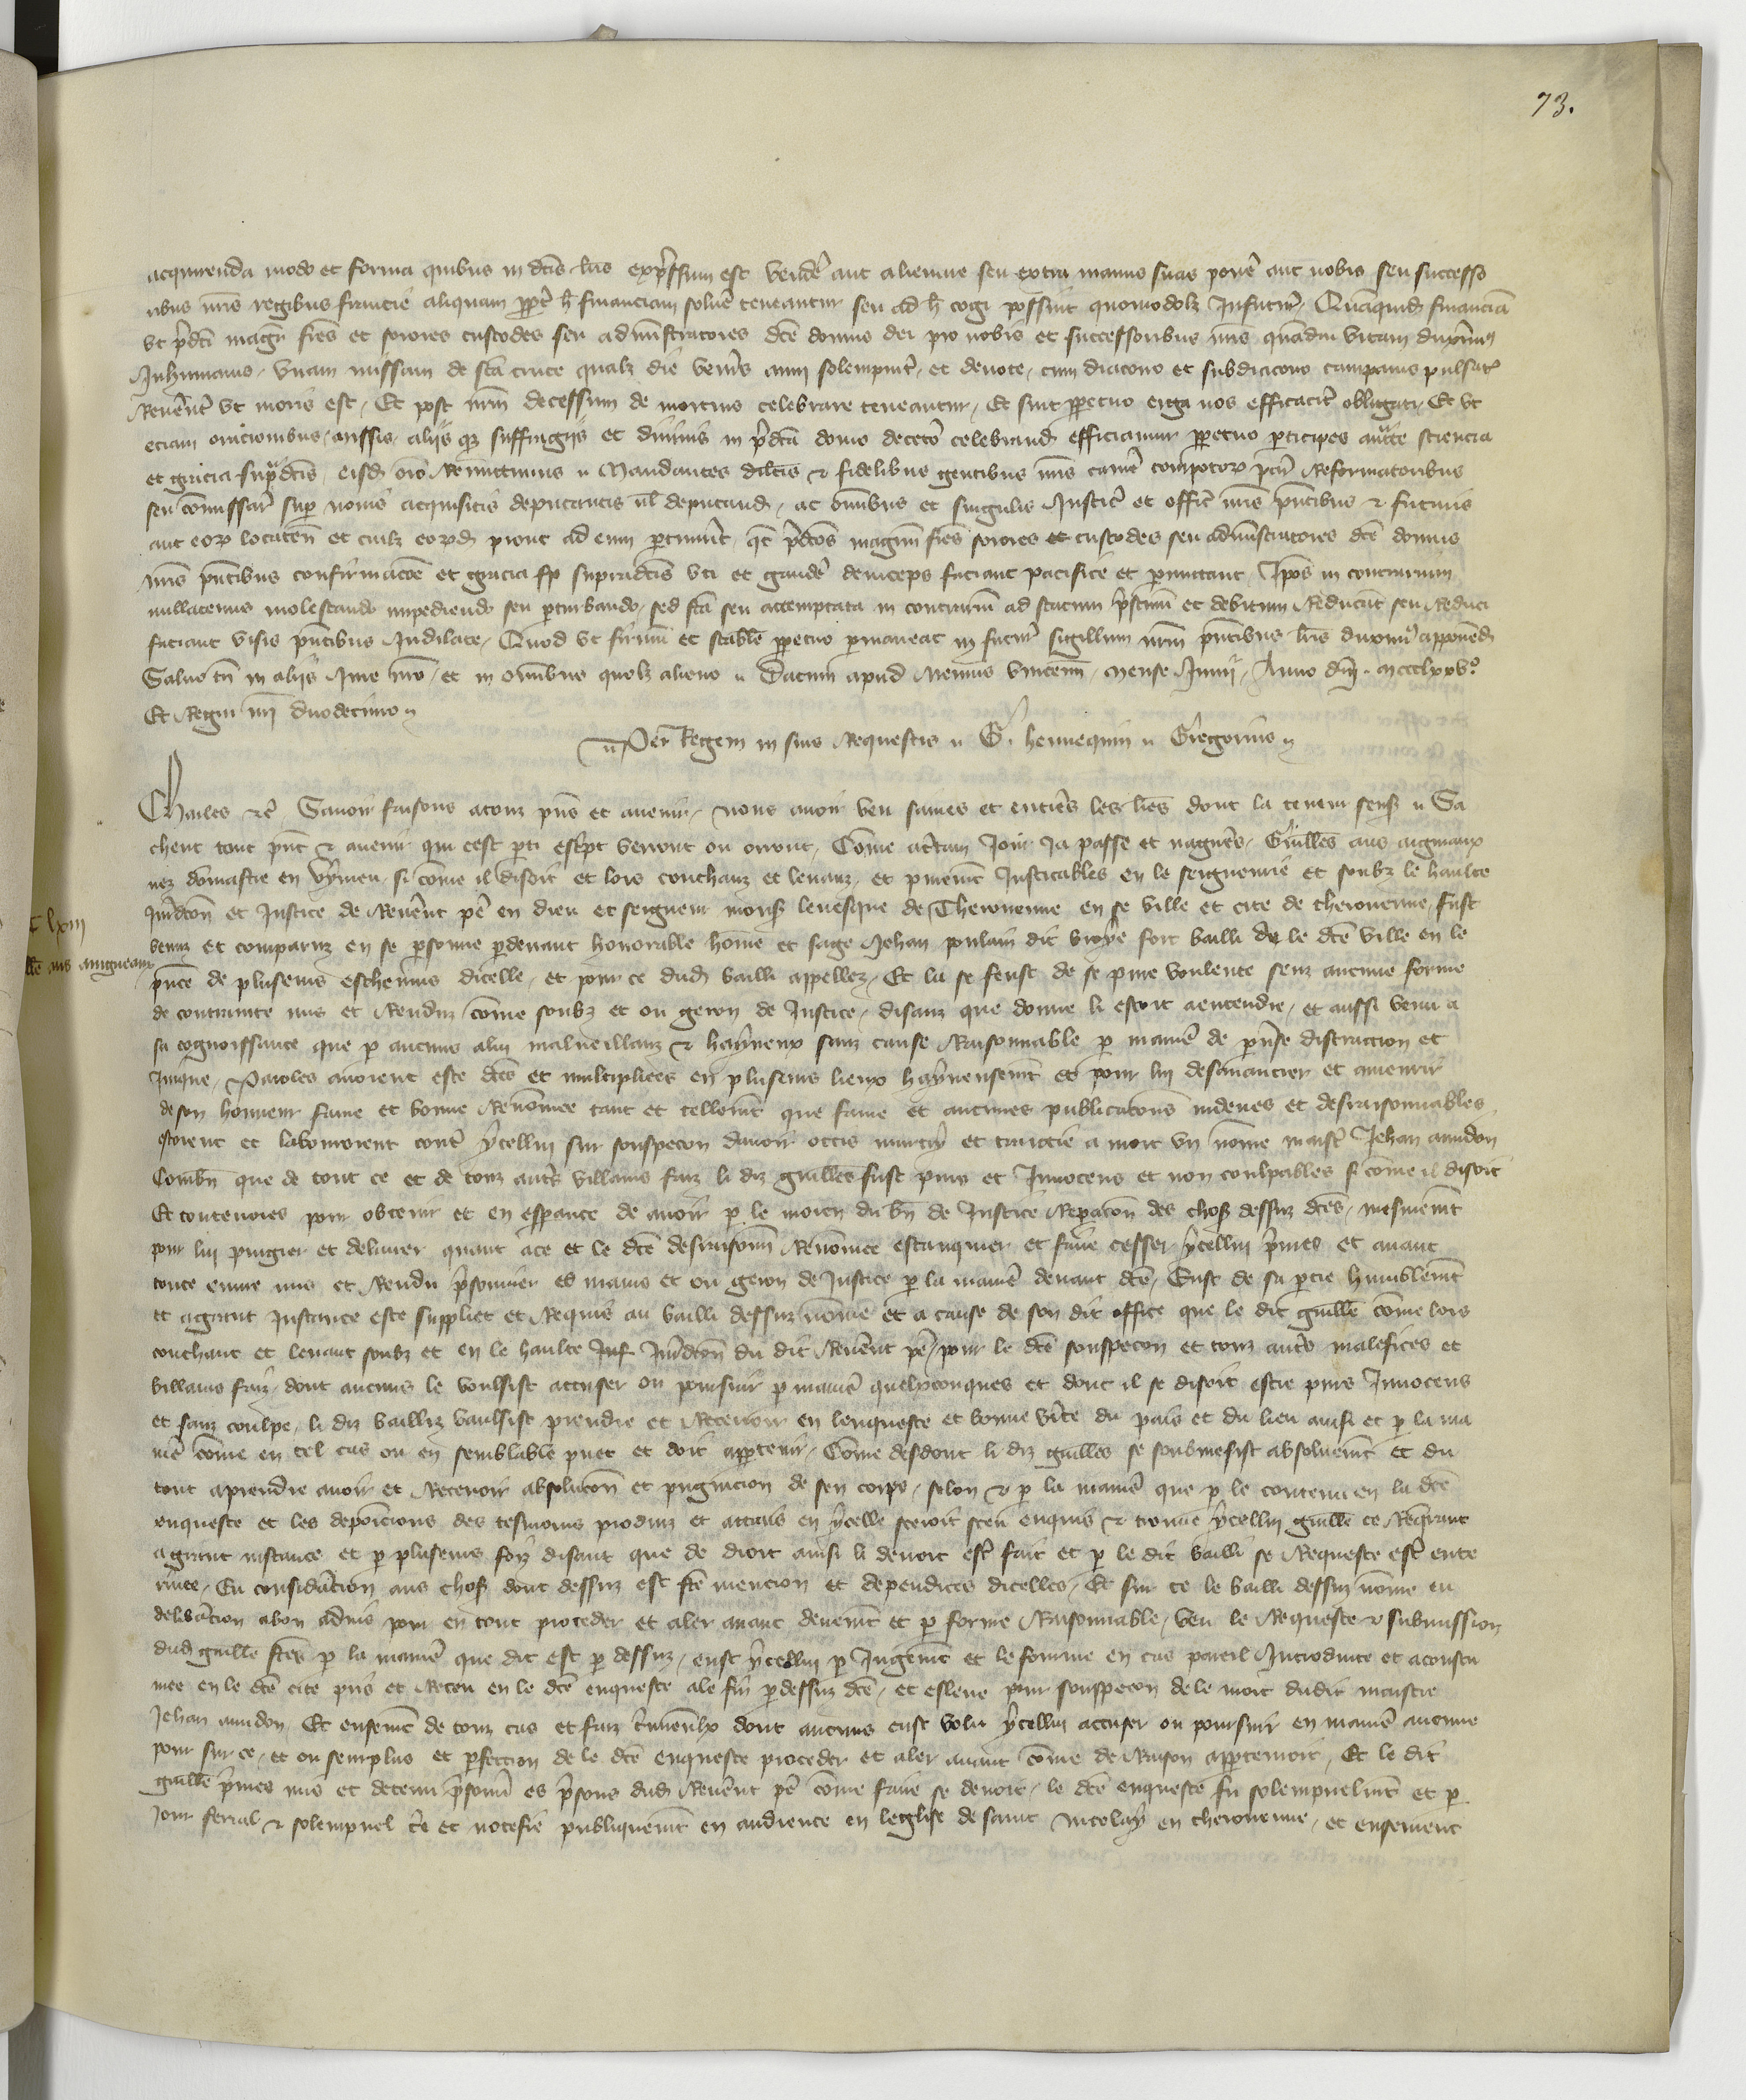 73.
acquirenda modo et forma quibus in dcis lris expressum est vendere aut alienare seu extra manus suas ponere aut nobis seu successo
ribus nris regibus francie aliquam propter h financiam solvere teneantur seu ad h cogi possint quomodolz Infuturum, Quaquid financia
ut predci magr fres et sorores custodes seu administratores dce domus dei pro nobis et successoribus nris quadam vitam duximus
Inhumanis, unam missam de sta cruce qualz die veneris anni solempniter, et devote, cum diacono et subdiacono campanis pulsatis
Reverenter ut moris est, Et post nrm decessum de mortuis celebrare teneantur, Et sint perpetuo erga nos efficaciter obligati, Et ut
etiam oracionibus, missis, aliis qz suffragiis et divinis in predca domo decetero celebrand efficiamur perpetuo participes auctte sciencia
et gracia supradcis, eisd oio Remittimus Mandantes dilcis et fidelibus gentibus nris camere compotor paris Reformatoribus
seu comissar super novis acquisitis deputatis vel deputand, ac omnibus et singulis Justic et offic nris pntibus et futuris
aut eor locaten et cuilz eord prout ad eum pertinuit, qt predcos magrum fres sorores et custodes seu administratores dce domus
nris pntibus confirmacoe et gracia sp supradcis uti et gaudere deinceps faciant pacifice et permittant, Ipos in contrarium
nullatenus molestando impediendo seu perturbando, sed sta seu attemptata in contrarium ad statum pristinu et debitum Reducat seu Reduci
faciant visis pntibus Indilate, Quod ut firmu et stabile perpetuo permaneat in futur sigillum nrm pntibus lris duximus apponend
Salvo tn in aliis Jure nro, et in omnibus quolz alieno Datum apud Nemus vincenn, mense Junii, Anno dni mccclxxvo
Et Regni nri duodecimo
Per Regem in suis Requestis G. hennequin Gregorius
Charles etc Savoir faisons atouz pns et avenir, nous avoir veu saines et entieres les lres dont la teneur sens Sa
chent tout pnt et avenir qui cest pnt escript verront ou orront, Come a certain Jour Ja passe et nagueres, Guilles aus aigneaux
nez domastre en vymeu, si come il disoit et lors couchanz et levanz, et purement Justicables en le seigneurie et soubz le haulte
Juridcon et Justice de Reverent pere en dieu et seigneur mons levesque de Therouenne en se ville et cite de therouenne, fust
venuz et comparuz en se personne pardevant honorable home et sage Jehan poulain dit viore fort bailli de le dce ville en le
pnce de pluseurs eschevins dicelle, et pour ce dud bailli appellez, Et la se feust de se pure voulente senz aucune forme
de contrainte mis et Renduz come soubz et ou geron de Justice, disanz que donne li estoit aentendre, et aussi venu a
sa cognoissance que par aucuns alui malveillanz et hayneux sanz cause Raisonnable par maniere de perverse distraccion et
Inique, Paroles avoient este dces et multipliees en pluseurs lieux hayneusement et pour lui desavancier et amenrir
de son honneur fame et bonne Renomee tant et tellement que fame et aucunes publicacons indeues et desraisonnables
estoient et labouroient contre ycellui sur souspecon davoir occis murtry et traittie a mort un nome maistre Jehan amidon
Combn que de tout ce et de touz autres villains faiz li diz guilles fust purs et Innocens et non coulpables si come il disoit
Et contenoies pour obtenir et en esperance de avoir par le moien du bn de Justice Reparacon des choses dessuz dces, mesmement
pour lui purgier et delivrer quant ace et le dce desraisonn Renomee estanquier et faire cesser, ycellui primes et avant
toute euvre mis et Rendu prisonnier es mains et ou geron de Justice par la maniere devant dce, Eust de sa partie humblement
et agrant Instance este suppliet et Requis au bailli dessuz nome et a cause de son dit office que le dit guille come lors
couchant et levant soubz et en le haulte Just Juridicon du dit Reverent pere, pour le dce souspecon et touz autres malefices et
villains faiz, dont aucuns le voulsist accuser ou poursuir par maniere quelxconques et dont il se disoit estre purs Innocens
et sanz coulpe, li diz bailliz vaulsist prendre et Recevoir en lenqueste et bonne verite du pais et du lieu ainsi et par la ma
niere come en tel cas ou en semblable puet et doit appartenir, Come desdont li diz guilles se soubmesist absolument et du
tout aprendre avoir et Recevoir absolucon et purgacion de sen corps, selon et par la maniere que par le contenu en la dce
enqueste et les deposicions des tesmoins produiz et attrais en ycelle seroit sceu enquis et trouve ycellui guille ce Requerant
agrant instance et par pluseurs foiz disant que de droit ainsi li devoit estre fait et par le dit bailli se Requeste estre ente
rinee, Eu consideracion aus choses dont dessuz est fte mencion et dependices dicelles, Et sur ce le bailli dessuz nome eu
deliberacion abon advis pour en tout proceder et aler avant deuement et par forme Raisonnable, veu le Requeste et submission
dud guille ftes par la maniere que dit est par dessuz, eust ycellui par Jugement et le fourme en cas pareil Introduitte et acoustu
mee en le dce cite pris et Receu en le dce enqueste ale fin pardessuz dce, et esleue pour souspecon de le mort dudit maistre
Jehan amidon, Et ensement de touz cas et faiz crimineulx dont aucuns eust volu ycellui accuser ou poursuir en maniere aucune
pour sur ce, et ou seurplus et perfeccion de le dce enqueste proceder et aler avant come de Raison appartenoit, Et le dit
guille primes mis et detenu prisonnier es prisons dud Reverent pere come faire se devoit, le dce enqueste fu solempnelment et par
Jour ferial et solempnel cree et notefie publiquement en audience en leglise de saint Nicolay en therouenne, et ensement